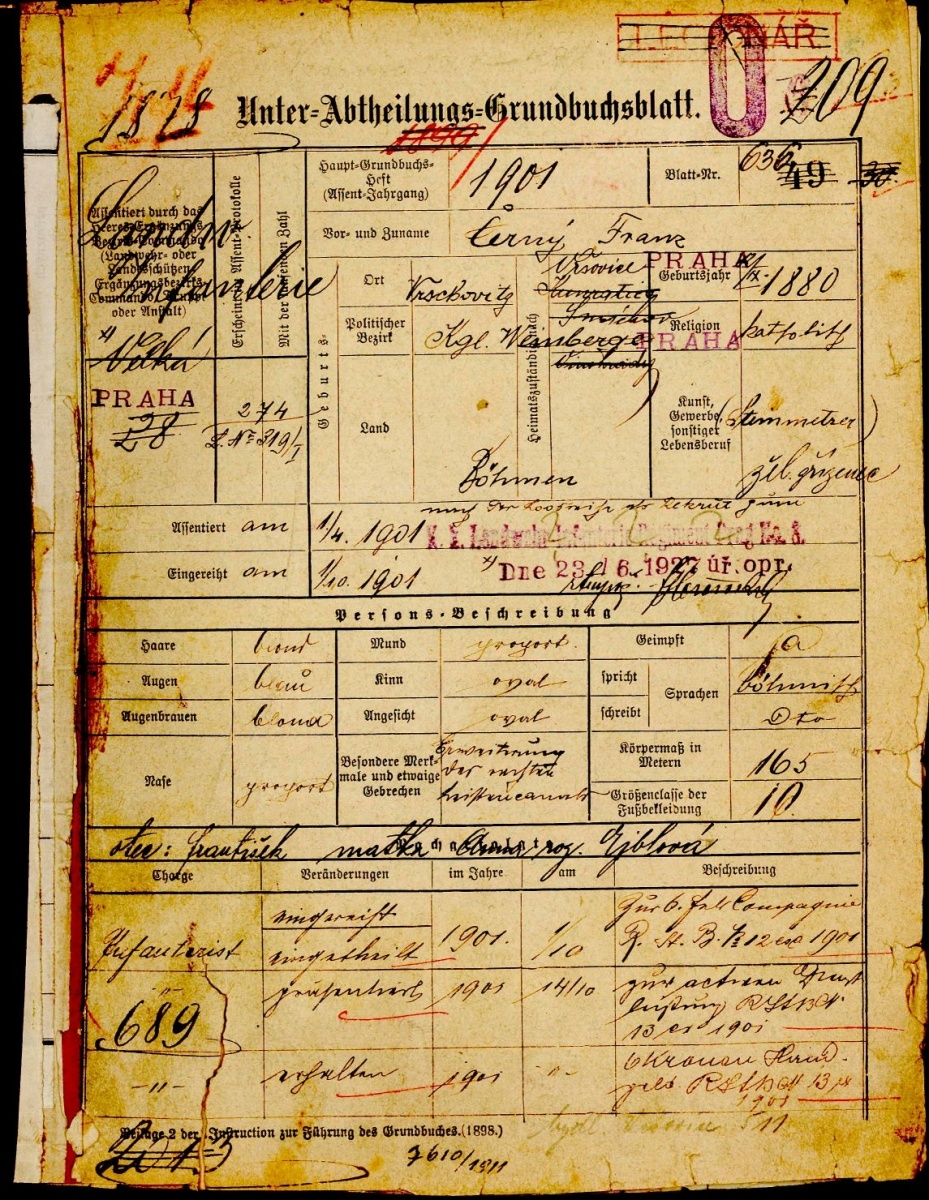 LEGIONÁŘ
1878
Unter-Abtheilungs-Grundbuchsblatt.
209
1899
Assentiert durch das Heeres-Ergänzungs-Bezirks-Commando (Landwehr- oder Landesschützen-Ergänzungsbezirks-Commando
oder Anstalt)
Landw. Infanterie
Velká
PRAHA
28
Erscheint im Assent-Protokolle
Mit der laufenden Zahl
274
319/I
Haupt-Grundbuchs-Heft (Assent-Jahrgang)
1901
Blatt-Nr.
636
49
30
Vor- und Zuname
Černý Franz
Geburts-
Ort
Vrschovitz
Politischer Bezirk
Kgl. Weinberge
Land
Böhmen
Heimatszuständig nach
Vršovice
Smíchov
PRAHA
PRAHA
Geburtsjahr
1880
Religion
katholisch
Kunst, Gewerbe, sonstiger Lebensberuf
(Steinmetzer)
žel. zřízenec
Assentiert am
1/4. 1901
nach der Losreihe als Rekrut zum
K. K. Landwehr-Infanterie-Regiment Prag No. 8.
Eingereiht am
1/10. 1901
Dne 23/6. 1927 úř. opr.
Persons-Beschreibung
Haare
blond
Mund
proport.
Geimpft
ja
Augen
blau
Kinn
oval
spricht
Sprachen
böhmisch
Augenbrauen
blond
Angesicht
oval
schreibt
Dto
Nase
proport
Besondere Merkmale und etwaige Gebrechen
Erweiterung des rechten Leistencanals
Körpermaß in Metern
165
Größenclasse der Fußbekleidung
10.
otec: František matka Anna roz.
Charge
Veränderungen
im Jahre
am
Beschreibung
Infanterist
eingereiht
eingetheilt
1901.
1/10
Zur 6. Feld Compagnie
R. St. B. No 12 ex 1901
-"-
689
präsentiert
1901
14/10
zur activen Dienst
leistung RStB No
13 ex 1901
-"-
erhalten
1901
-"-
6 Kronen Hand-
geld RStB No 13 ex
1901
Beilage 2 der Instruction zur Führung des Grundbuches. (1898.)
7610/1911